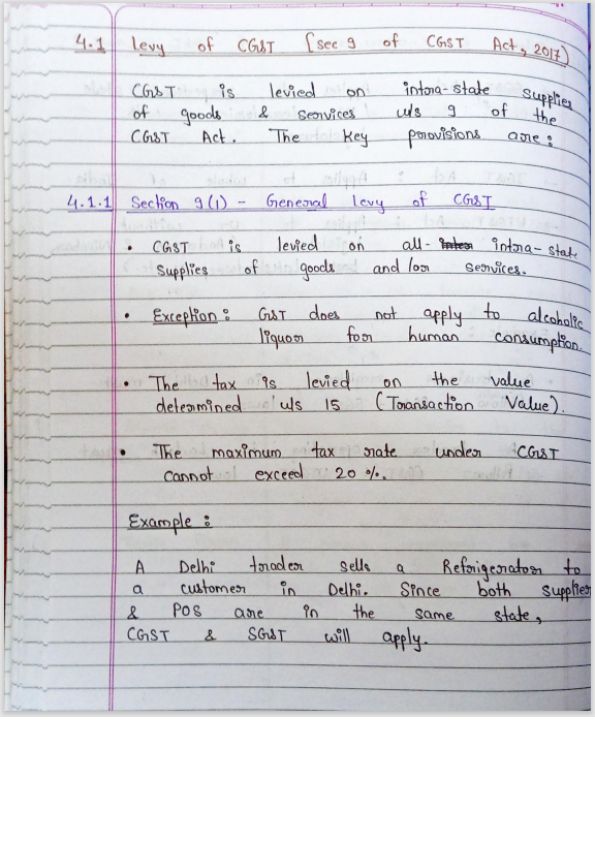 4.1 Levy of CGST [Sec 9 of CGST Act, 2017)
CGST is levied on intra-state supplies
of goods & services u/s 9 of the
CGST Act. The key provisions are:
4.1.1 Section 9(1) - General levy of CGST
• CGST is levied on all- intra-state
Supplies of goods and/or services.
• Exception: GST does not apply to alcoholic
liquor for human consumption.
• The tax is levied on the value
determined u/s 15 (Transaction Value).
• The maximum tax rate under CGST
cannot exceed 20%.
Example:
A Delhi trader sells a Refrigerator to
a customer in Delhi. Since both supplier
& POS are in the same state,
CGST & SGST will apply.